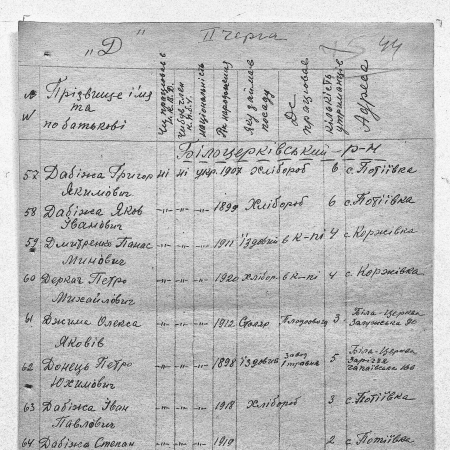 „Д" II черга 44
№№ Прізвище ім'я та по батькові
національність
Рік народження
Яку займав посаду
Де працював
кількість утриманців
Адреса
Білоцерківський р-н
57 Дабіжа Григор Якимович ні ні укр. 1907 Хлібороб 6 с. Потіївка
58 Дабіжа Яков Іванович -"- -"- -"- 1899 Хлібороб 6 с. Потіївка
59 Дмитренко Панас Минович -"- -"- -"- 1911 Їздовий в к-пі 4 с. Коржівка
60 Деркач Петро Михайлович -"- -"- -"- 1920 Хлібор. в к-пі 4 с. Коржівка
61 Джима Олекса Яковів -"- -"- -"- 1912 Столяр 3 Біла-Церква
62 Донець Петро Юхимович -"- -"- -"- 1898 їздовий завод 5 Біла-Церква Заріччя
63 Дабіжа Іван Павлович -"- -"- -"- 1918 Хлібороб 3 с. Потіївка
64 Дабіжа Степан -"- -"- -"- 1919 2 с. Потіївка